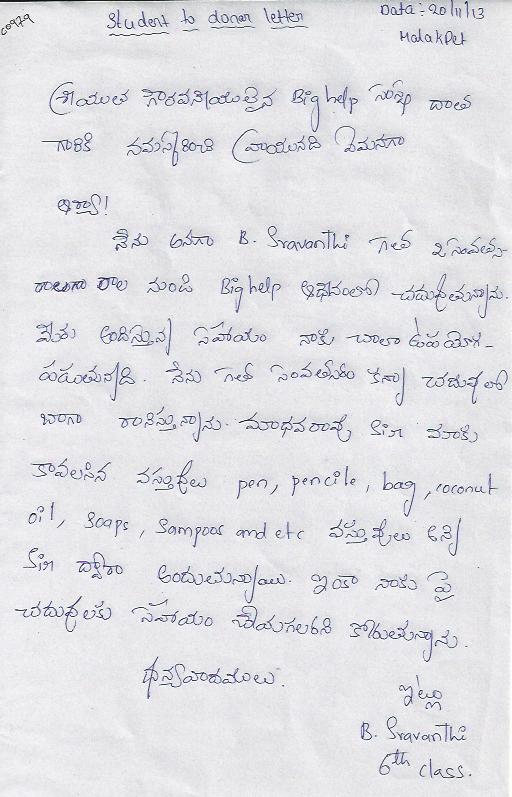 C0979
Student to donar letter
Data :- 20/11/13
Malakpet
శ్రీయుత గౌరవనీయులైన Big help సంస్థ దాత
గారికి నమస్కరించి వ్రాయునది ఏమనగా
ఆర్యా!
నేను అనగా B. Sravanthi గత 2 సంవత్స-
రాల నుండి Big help ఆధీనంలో చదువుతున్నాను.
మీరు అందిస్తున్న సహాయం నాకు చాలా ఉపయోగ-
పడుతున్నది. నేను గత సంవత్సరం కన్నా చదువులో
బాగా రాణిస్తున్నాను. మాధవరావు Sir మాకు
కావలసిన వస్తువులు pen, pencile, bag, coconut
oil, soaps, sampoos and etc వస్తువులు అన్ని
Sir ద్వారా అందుతున్నాయి. ఇంకా నాకు పై
చదువులకు సహాయం చేయగలరని కోరుతున్నాను.
ధన్యవాదములు.
ఇట్లు
B. Sravanthi
6th class.